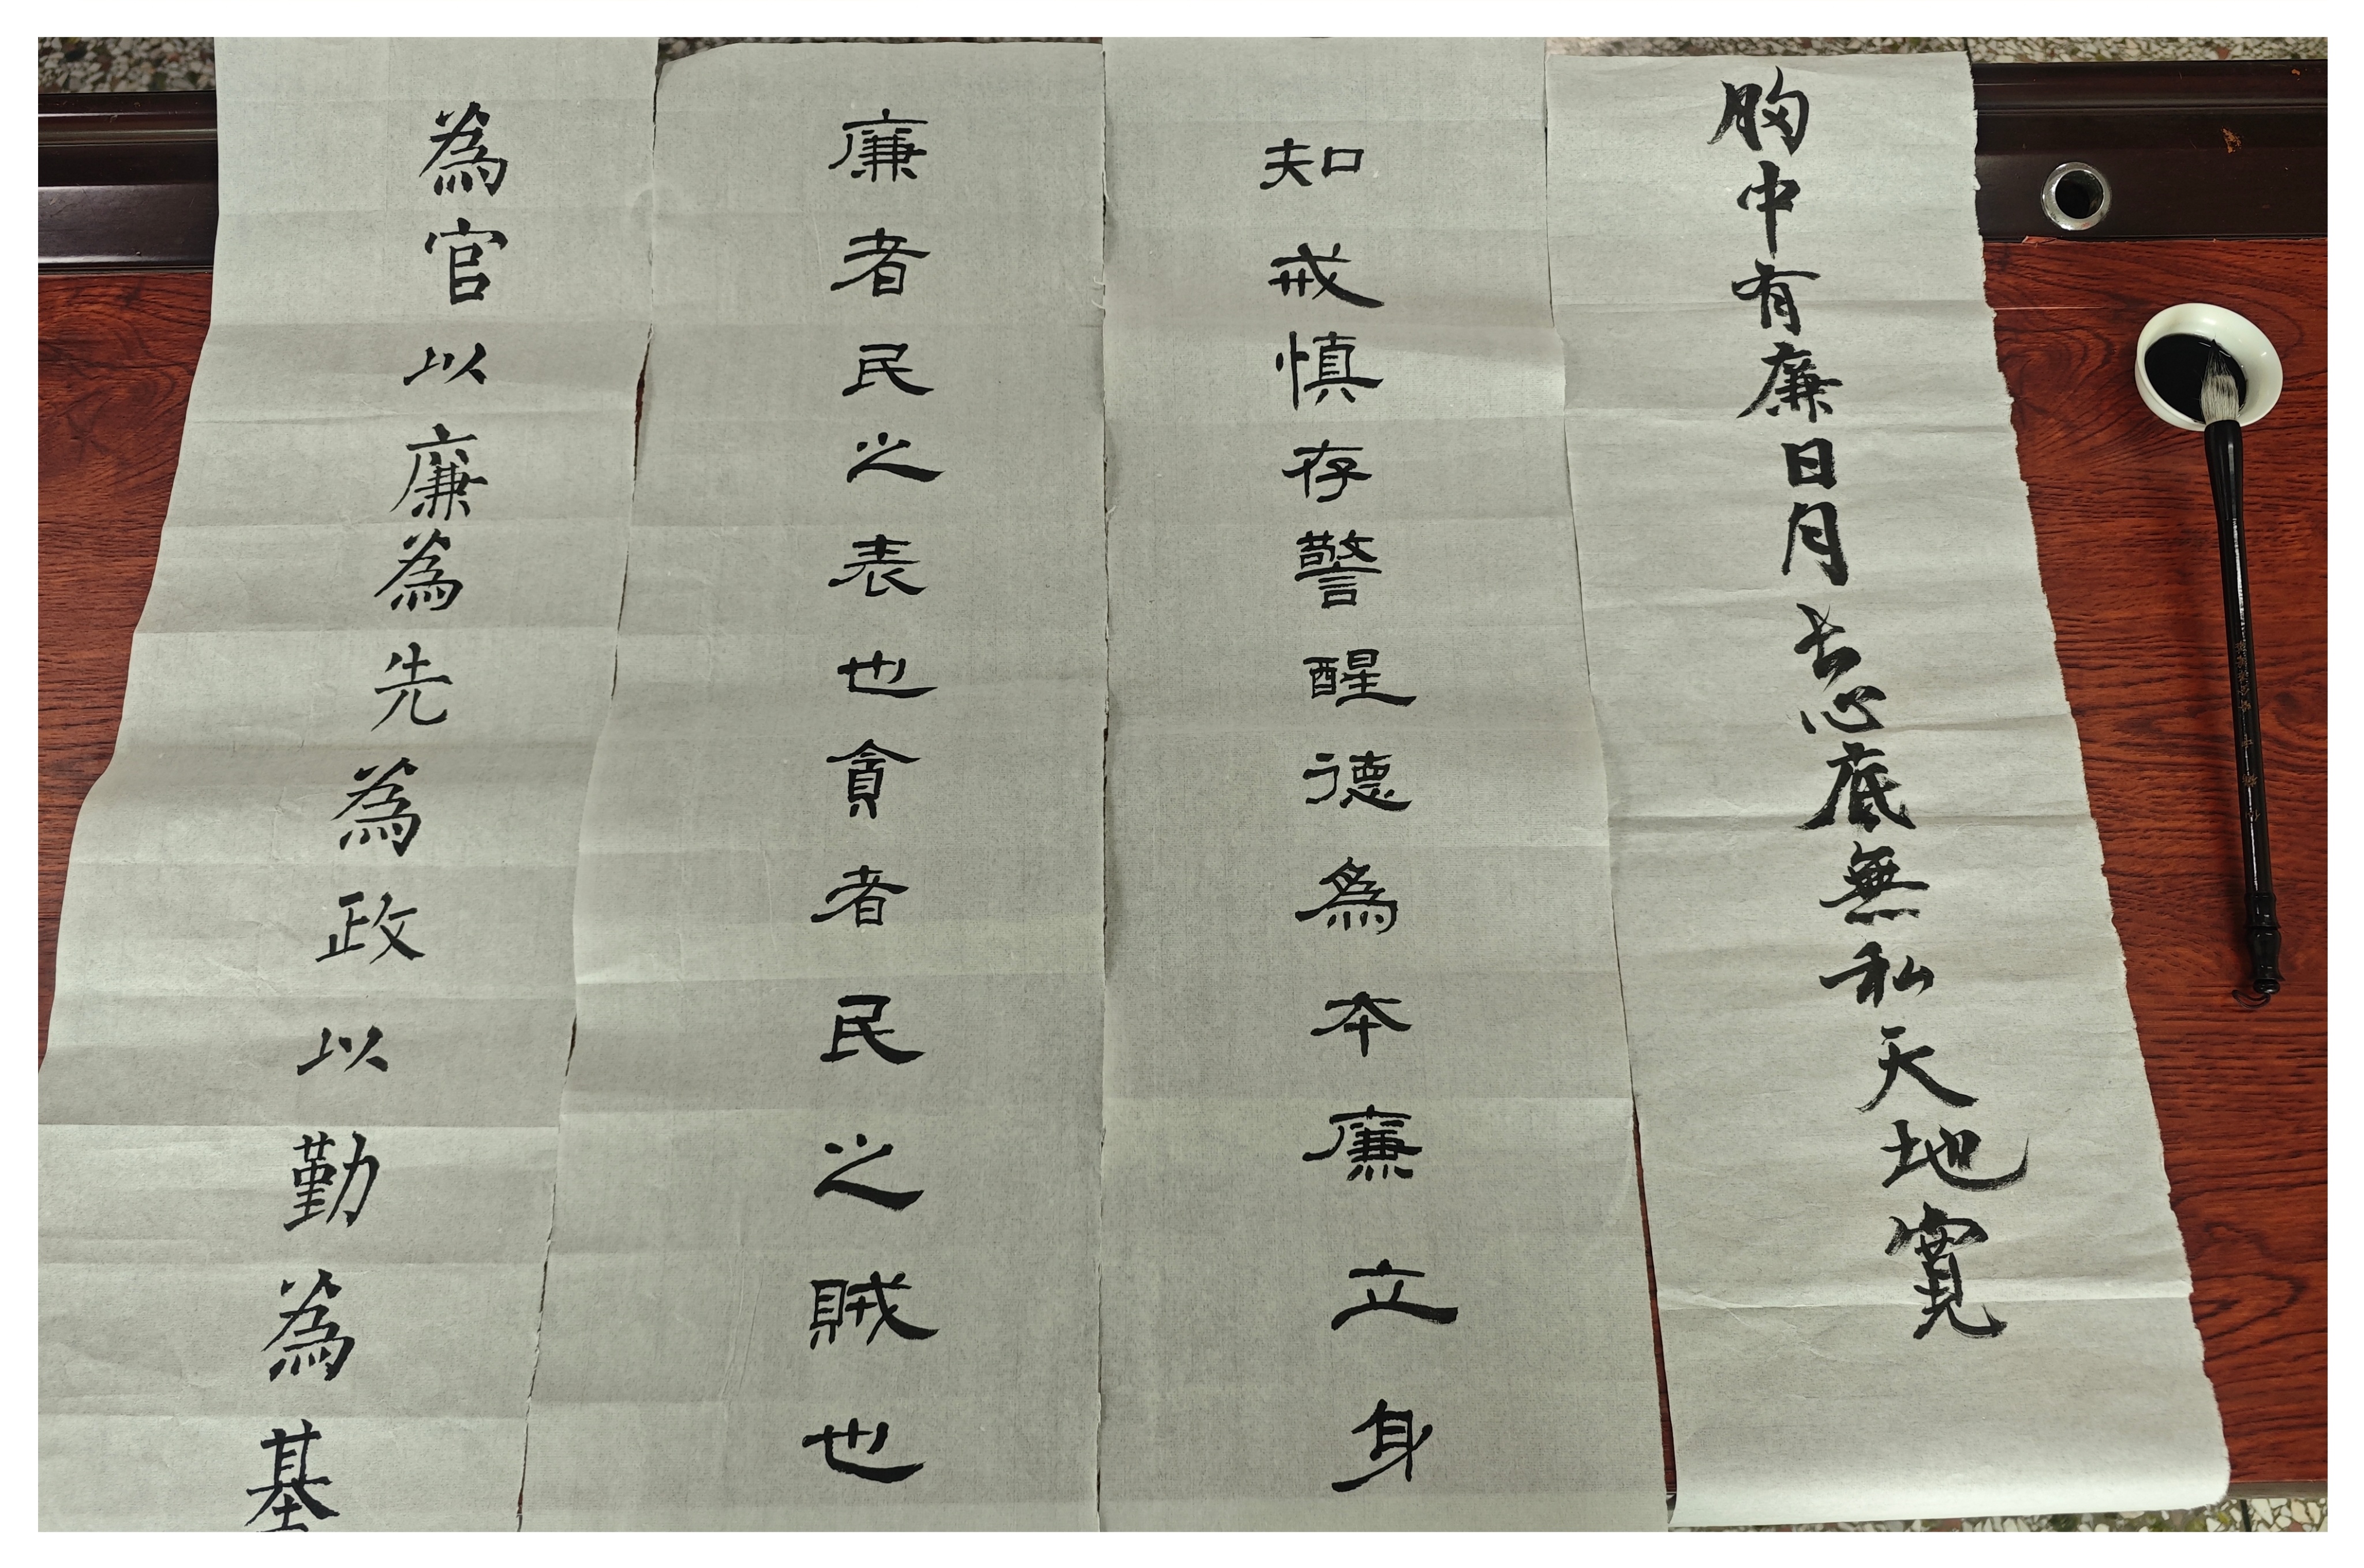 胸中有廉日月长心底無私天地寬
知戒慎存警醒德為本廉立身
廉者民之表也貪者民之賊也
為官以廉為先為政以勤為基